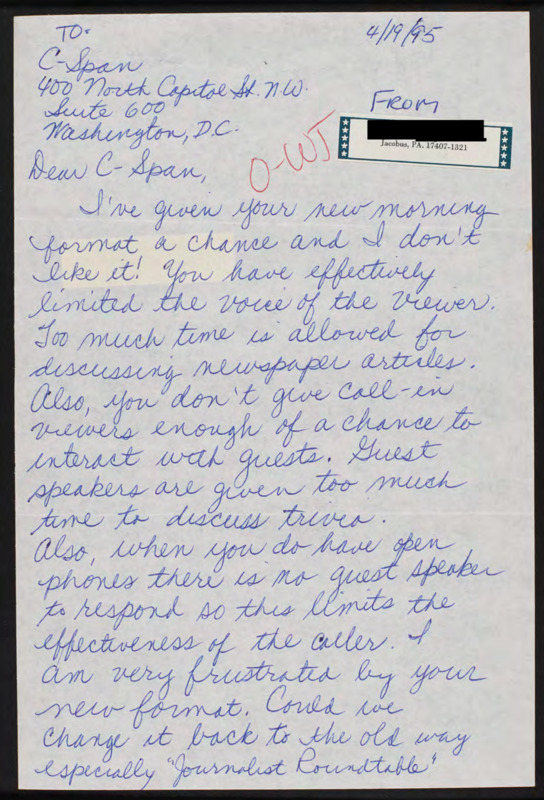 TO:
4/19/95
C-Span
400 North Capitol St. N.W.
Suite 600
Washington, D.C.
FROM
Jacobus, PA. 17407-1321
O-WJ
Dear C-Span,
I've given your new morning
format a chance and I don't
like it! You have effectively
limited the voice of the viewer.
Too much time is allowed for
discussing newspaper articles.
Also, you don't give call-in
viewers enough of a chance to
interact with guests. Guest
speakers are given too much
time to discuss trivia.
Also, when you do have open
phones there is no guest speaker
to respond so this limits the
effectiveness of the caller. I
am very frustrated by your
new format. Could we
change it back to the old way
especially "Journalist Roundtable"